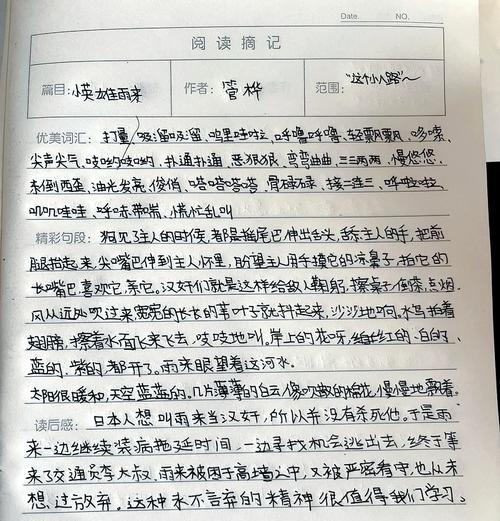 Date. NO.
阅 读 摘 记
篇目: 小英雄雨来 作者: 管桦 范围: "这个小人
优美词汇: 打量 吸溜吸溜 呜里哇啦 呼噜呼噜 轻飘飘 哆嗦
尖声尖气 吱哟吱哟 扑通扑通 恶狠狠 弯弯曲曲 三三两两 慢悠悠
东倒西歪 油光发亮 俊俏 嗒嗒嗒嗒 骨碌碌 接二连三 呼啦啦
叽叽哇哇 呼哧带喘 慌忙乱叫
精彩句段: 狗见了主人的时候,都是摇尾巴伸出舌头,舔主人的手,把前
腿抬起来,尖嘴巴伸到主人怀里,盼望主人用手摸它的凉鼻子,拍它的
长嘴巴喜欢它,亲它。汉奸们就是这样给敌人鞠躬、擦桌子、倒茶、点烟。
风从远处吹过来,宽宽的长长的苇叶子就抖起来,沙沙地响。水鸟拍着
翅膀,擦着水面飞来飞去,吱吱地叫。岸上的花呀,红的、白的、
蓝的、紫的都开了。雨来眼望着这河水。
太阳很暖和,天空蓝蓝的。几片薄薄的白云像吹散的棉花,慢慢地飘着。
读后感: 日本人想叫雨来当汉奸,所以并没有杀死他。于是雨
来一边继续装病拖延时间,一边寻找机会逃出去,终于等
来了交通员李大叔。雨来被困于高墙之中,又被严密看守,也从未
想过放弃。这种永不言弃的精神很值得我们学习。